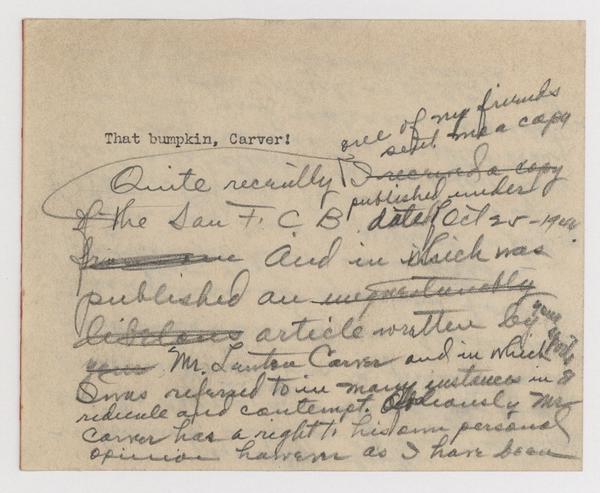 That bumpkin, Carver!
one of my friends
sent me a copy
Quite recently I received a copy
published under
of the San F. C B. dated Oct 25-
And in which was
published an unquestionably
libelous article written by
your Mr. Lawton Carver and in which
I was referred to in many instances in
ridicule and contempt. Obviously Mr
Carver has a right to his own personal
opinion however as I have been